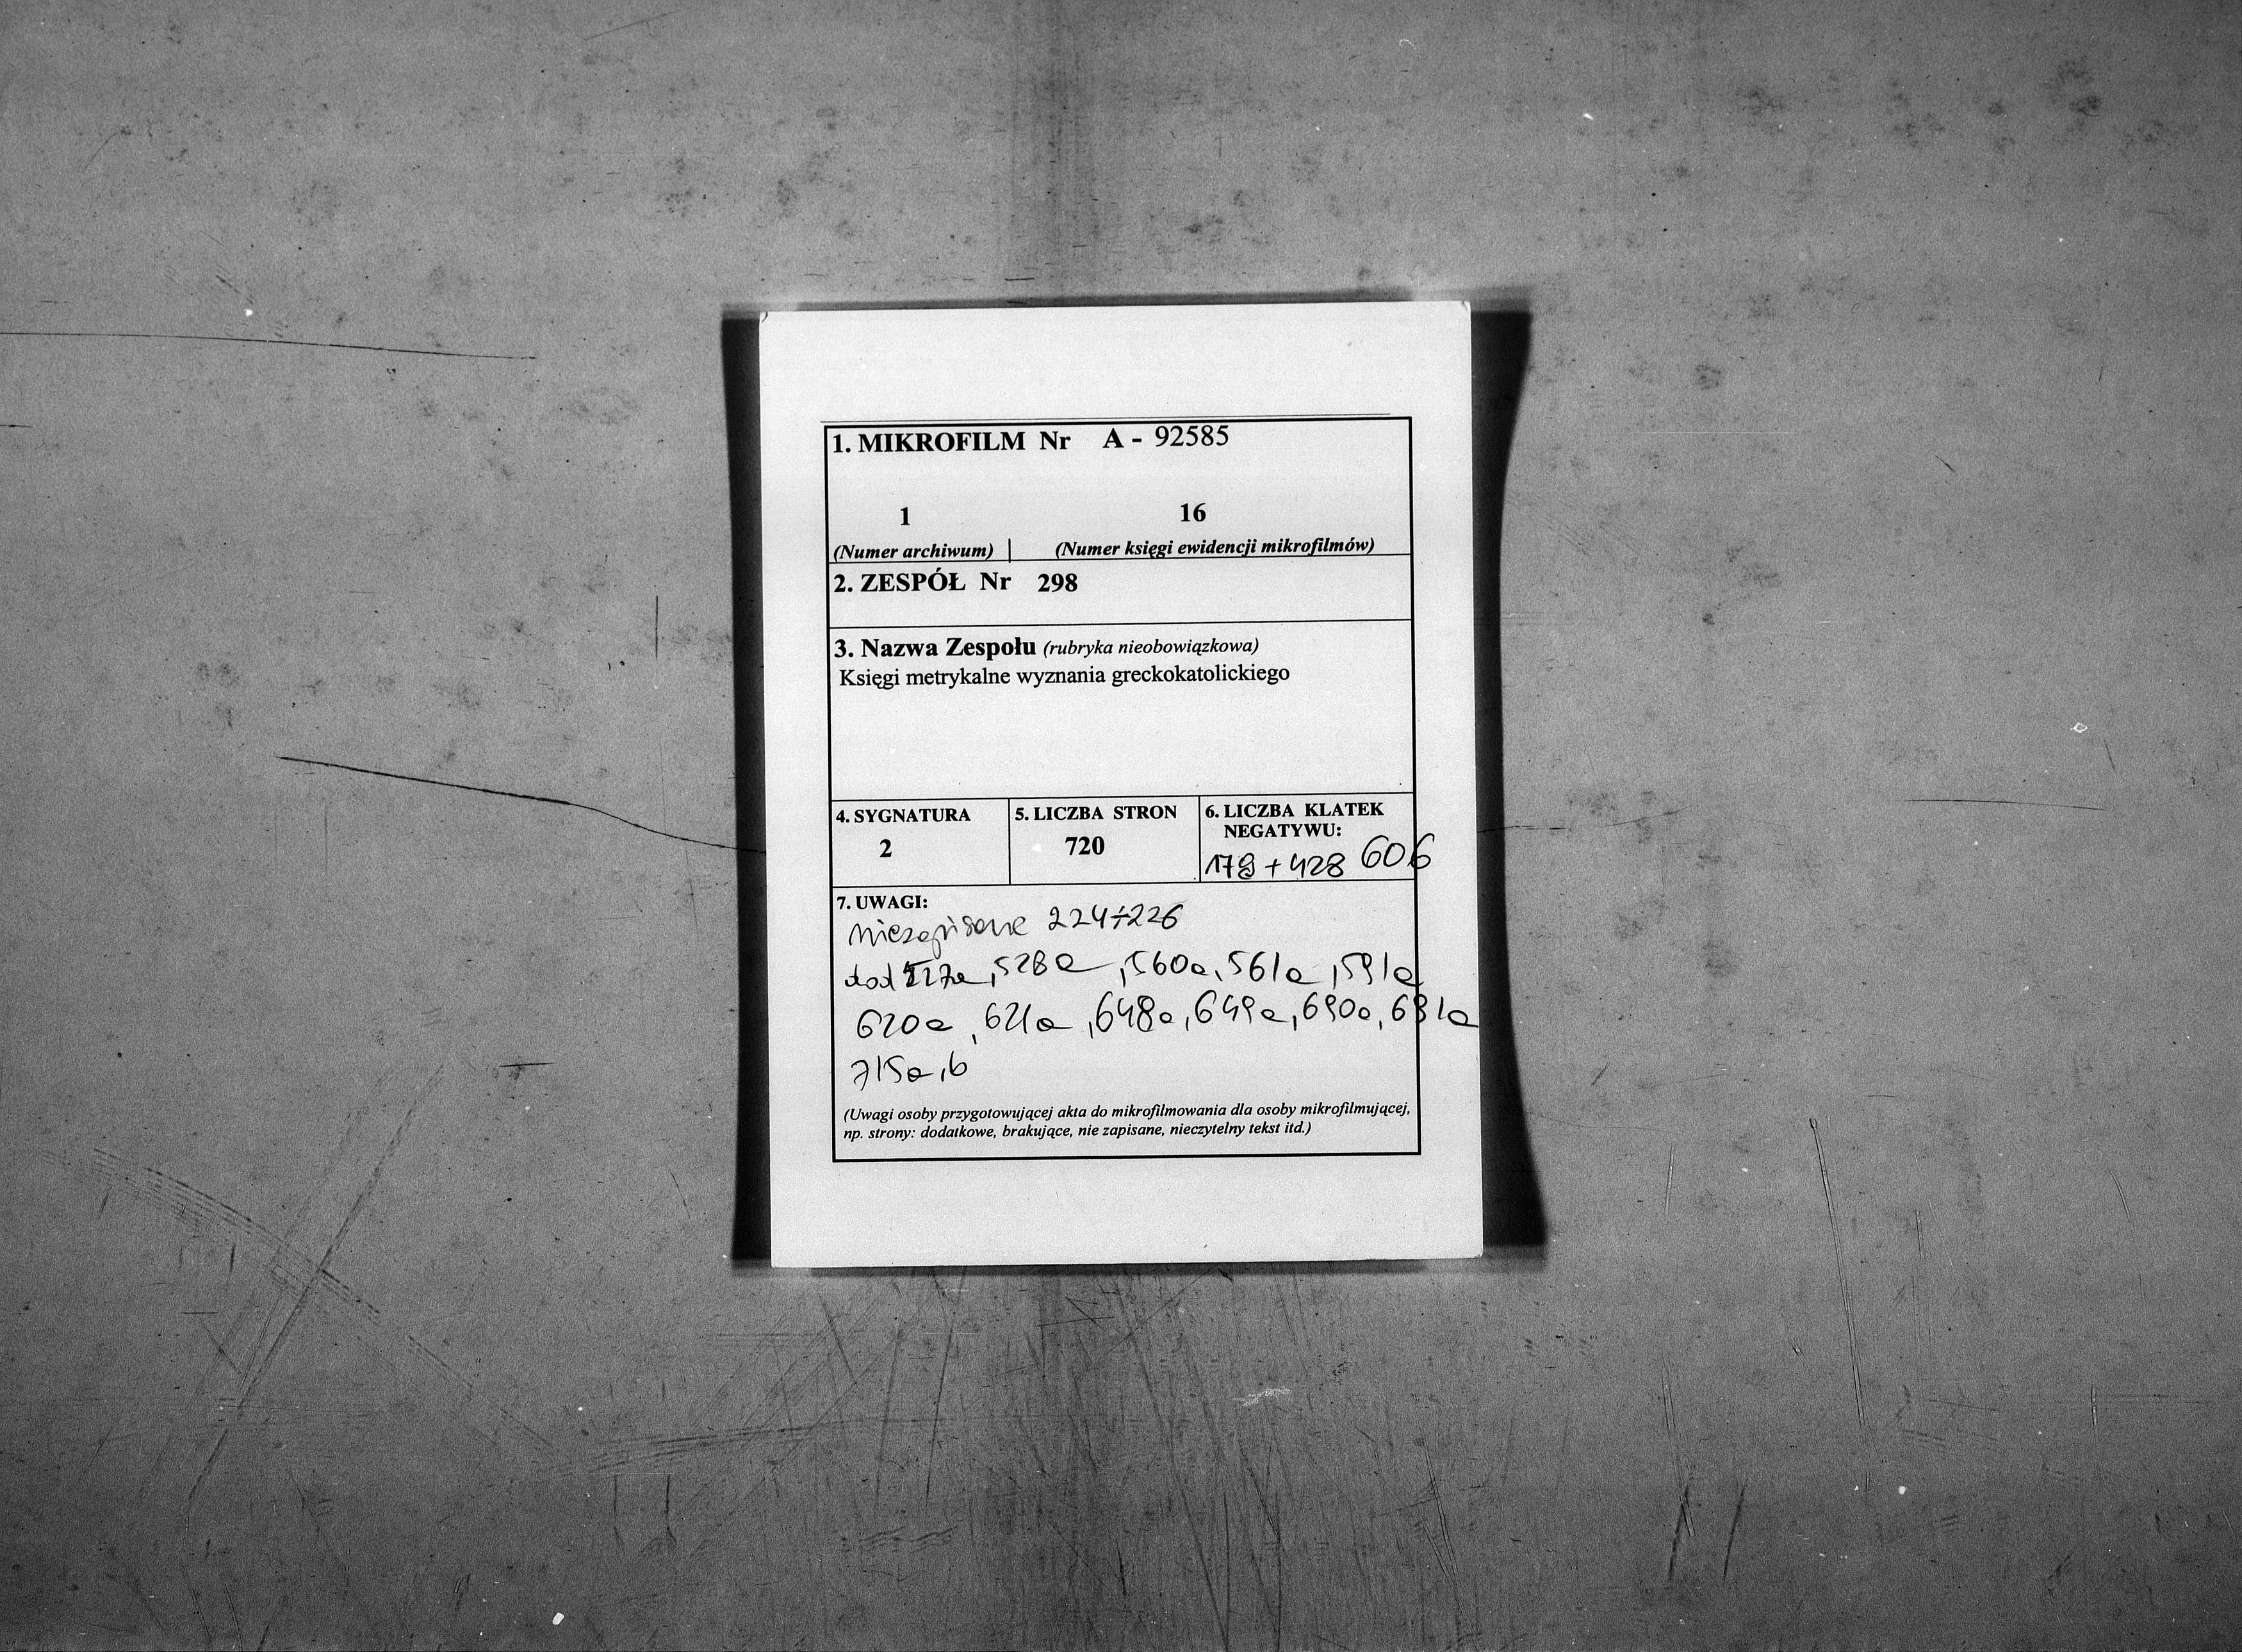 1. MIKROFILM Nr A - 92585
1 16
(Numer archiwum) (Numer księgi ewidencji mikrofilmów)
2. ZESPÓŁ Nr 298
3. Nazwa Zespołu (rubryka nieobowiązkowa)
Księgi metrykalne wyznania greckokatolickiego
4. SYGNATURA
2
5. LICZBA STRON
720
6. LICZBA KLATEK
NEGATYWU:
+ 428 606
7. UWAGI:
niezapisane 224÷226
dod 527a, 528a, 560a, 561a, 591a
620a, 621a, 648a, 649a, 690a, 691a
715a, b
(Uwagi osoby przygotowującej akta do mikrofilmowania dla osoby mikrofilmującej,
np. strony: dodatkowe, brakujące, nie zapisane, nieczytelny tekst itd.)